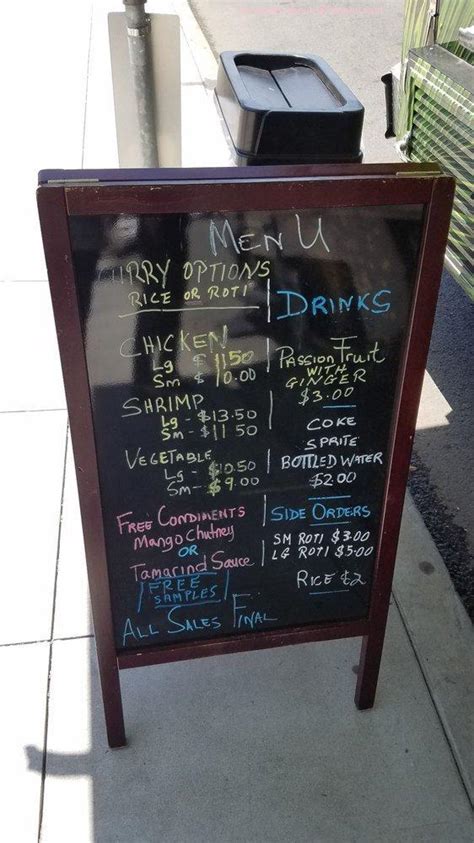 MENU
CURRY OPTIONS
RICE OR ROTI
CHICKEN
Lg $ 11.50
Sm $ 10.00
SHRIMP
Lg - $13.50
Sm - $11 50
VEGETABLE
Lg - $10.50
Sm - $9.00
FREE CONDIMENTS
Mango Chutney
OR
Tamarind Sauce
FREE
SAMPLES
ALL SALES FINAL
DRINKS
PASSION FRUIT
WITH
GINGER
$3.00
COKE
SPRITE
BOTTLED WATER
$2.00
SIDE ORDERS
SM ROTI $3.00
LG ROTI $5.00
RICE $2